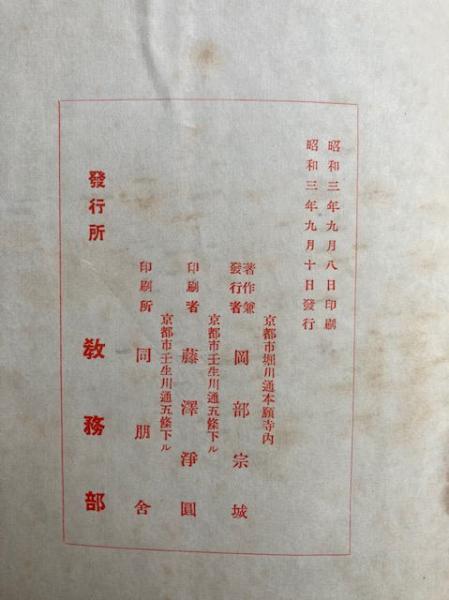 昭和三年九月八日印刷
昭和三年九月十日發行
京都市堀川通本願寺内
著作兼發行者 岡部宗城
京都市壬生川通五條下ル
印刷者 藤澤淨圓
京都市壬生川通五條下ル
印刷所 同朋舍
發行所 教務部